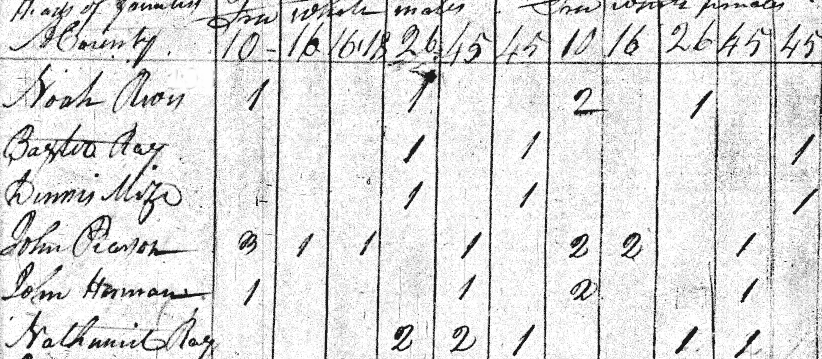 Heads of families Free white males. Free white females
& County. 10- 16 16.18 26 45 45 10 16 26 45 45
Noah 1 1 2 1
Baxter Ray 1 1 1
Dennis Mize 1 1 1
John Pearson 3 1 1 1 2 2 1
John Herman 1 1 2 1
Nathaniel Ray 2 2 1 1 1